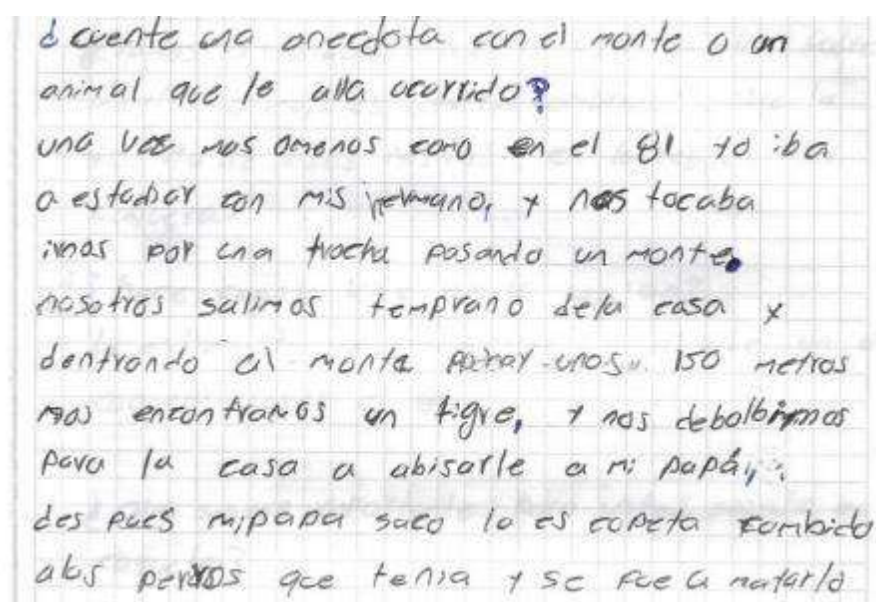 ¿cuente una anecdota con el monte o un
animal que le alla ocurrido?
una vez mas omenos como en el 81 yo iba
a estudiar con mis hermano, y nos tocaba
irnos por una trocha pasando un monte.
nosotros salimos temprano dela casa y
dentrando al monte unos 150 metros
nos encontramos un tigre, y nos debolbimos
para la casa a abisarle a mi papá,
des pues mipapa saco la es copeta
alos perros que tenia y se fue a matarlo